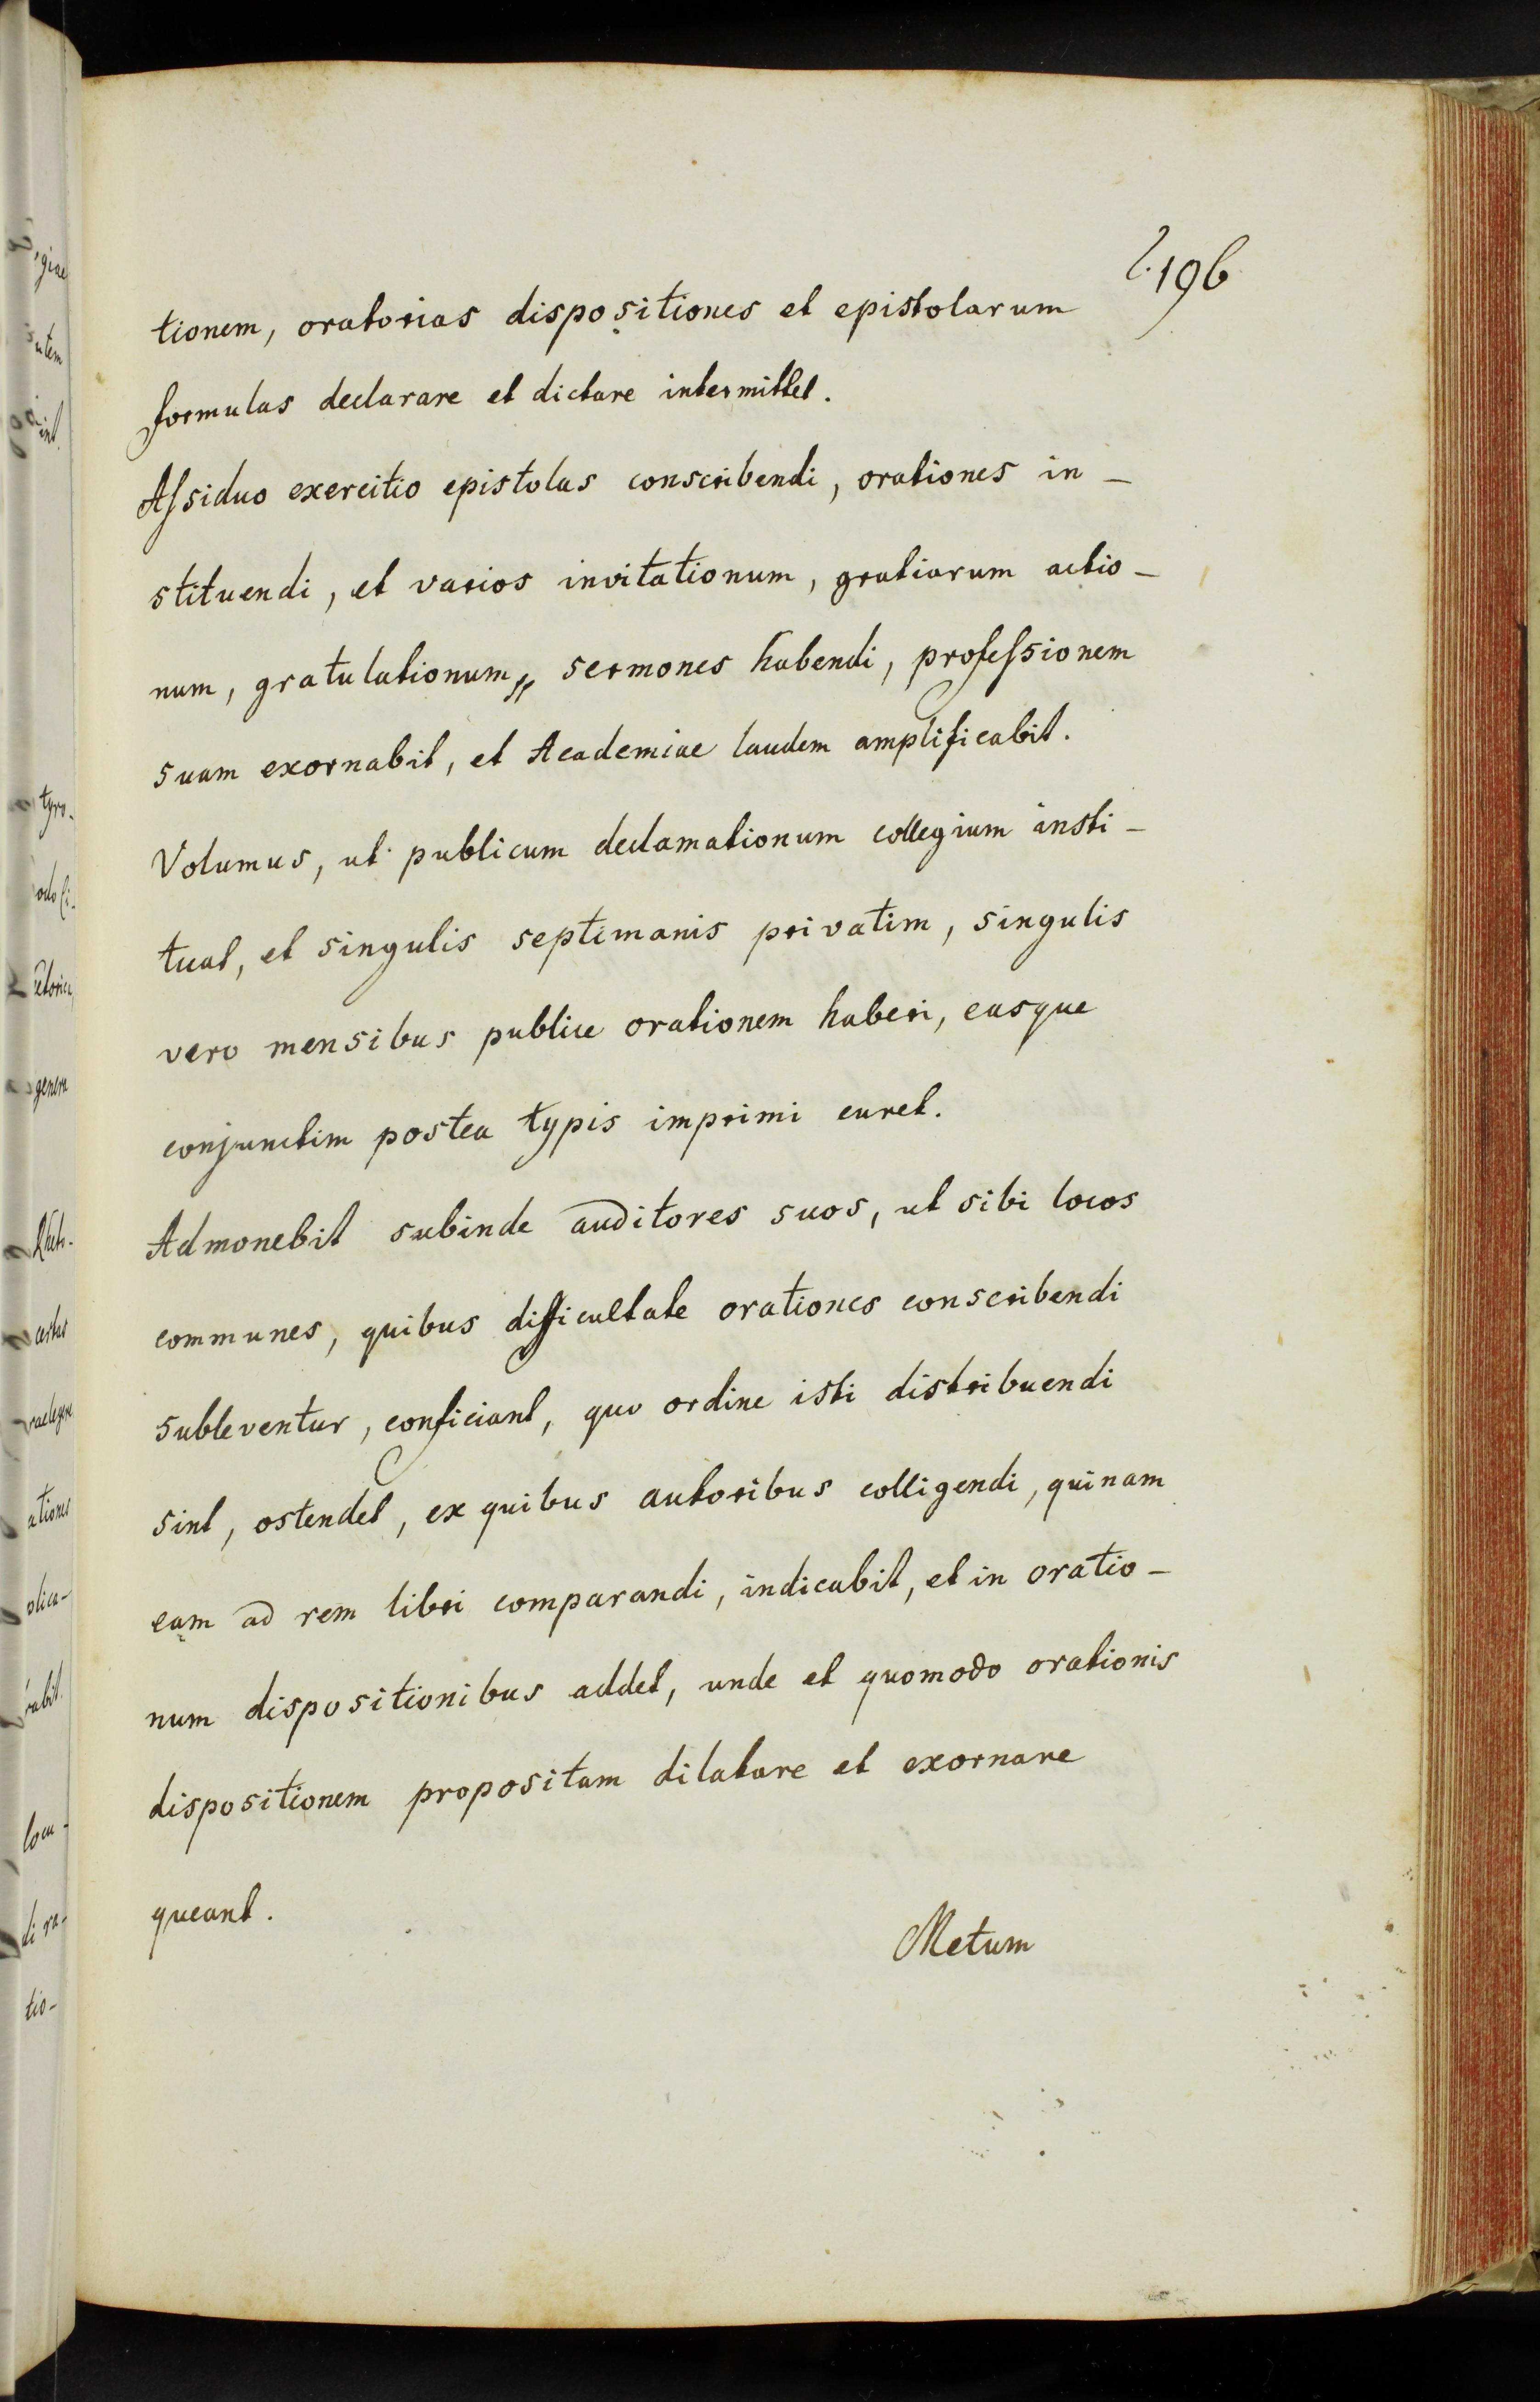 l. 196
tionem, oratorias dispositiones et epistolarum
formulas declarare et dictare intermittet.
Aſsiduo exercitio epistolas conscribendi, orationes in-
stituendi, et varios invitationum, gratiarum actio-
num, gratulationum,, sermones habendi, profeſsionem
suam exornabit, et Academiae laudem amplificabit.
Volumus, ut publicum declamationum collegium insti-
tuat, et singulis septimanis privatim, singulis
vero mensibus publice orationem haberi, easque
conjunctim postea typis imprimi curet.
Admonebit subinde auditores suos, ut sibi locos
communes, quibus difficultate orationes conscribendi
subleventur, conficiant, quo ordine isti distribuendi
sint, ostendet, ex quibus autoribus colligendi, quinam
eam ad rem libri comparandi, indicabit, et in oratio-
num dispositionibus addet, unde et quomodo orationis
dispositionem propositam dilatare et exornare
queant.
Metum